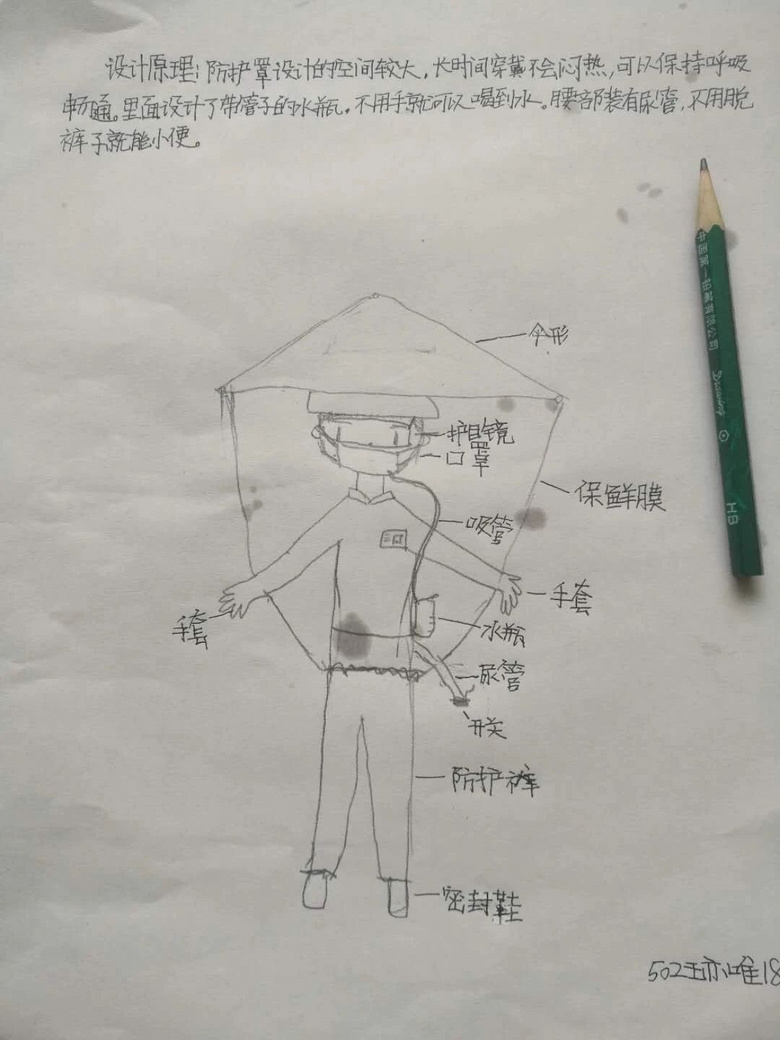 设计原理:防护罩设计的空间较大,长时间穿戴不会闷热,可以保持呼吸
畅通。里面设计了带管子的水瓶。不用手就可以喝到水。腰部装有尿管,不用脱
裤子就能小便。
伞形
护目镜
口罩
保鲜膜
吸管
手套
手套
水瓶
尿管
开关
防护裤
密封鞋
中国第一铅笔有限公司
Drawing
HB
502王亦唯18